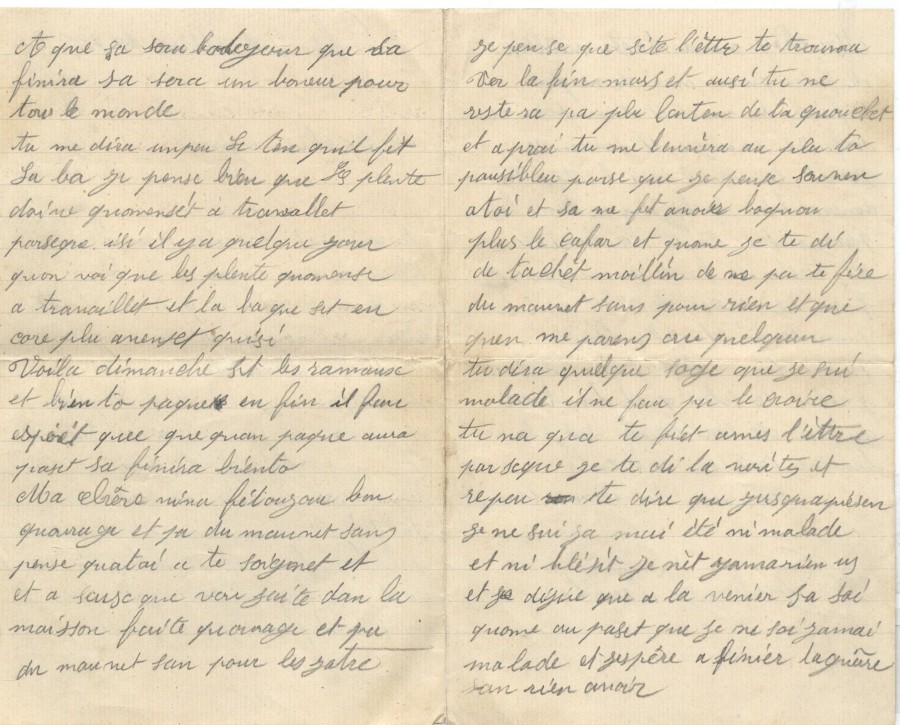 et que sa sera bodeyour que sa
finira sa sera un boneur pour
tou le monde
tu me dira unpeu le ten quil fét
la ba je pense bien que les plente
doive quomensét a travallet
parsegre isi il y a quelque your
quon voi que les plente quomense
a travaillet et la ba que set en
core plu avenset quisi
Voila dimanche set les ramause
et bien to paques en fin il fau
espéret quee que quan paque aura
paset sa finira biento
Ma chère nina fétouzou bon
quourage et pa du mauvet sans
pense quatoi a te soignet et
et a seuse que vou suite dan la
maisson fuite quourage et pa
du mauvet san pour les zotre
je pense que séte l'éttre te trouvra
ver la fin mars et ausi tu ne
restera pa plu lonten de ta quouchet
et aprai tu me lenvéra au plu to
pousibleu parse que je pense souven
a toi et sa me fet avoir boquou
plus le cafar et quome je te di
de tachét moillin de ne pa te fére
du mauvet sans pour rien et que
quen me parens ou quelquun
tu dira quelque soge que je sui
malade il ne fau pa le croire
tu na qua te fiét ames l'éttre
parseque je te di la vérites et
repeu te dire que jusquaprésen
je ne sui ja mai été ni malade
et ni blésit je nèt jamarien us
et je désire que a la venier sa soi
quome au paset que je ne soi jamai
malade et jespêre a finier laguêrre
san rien avoir